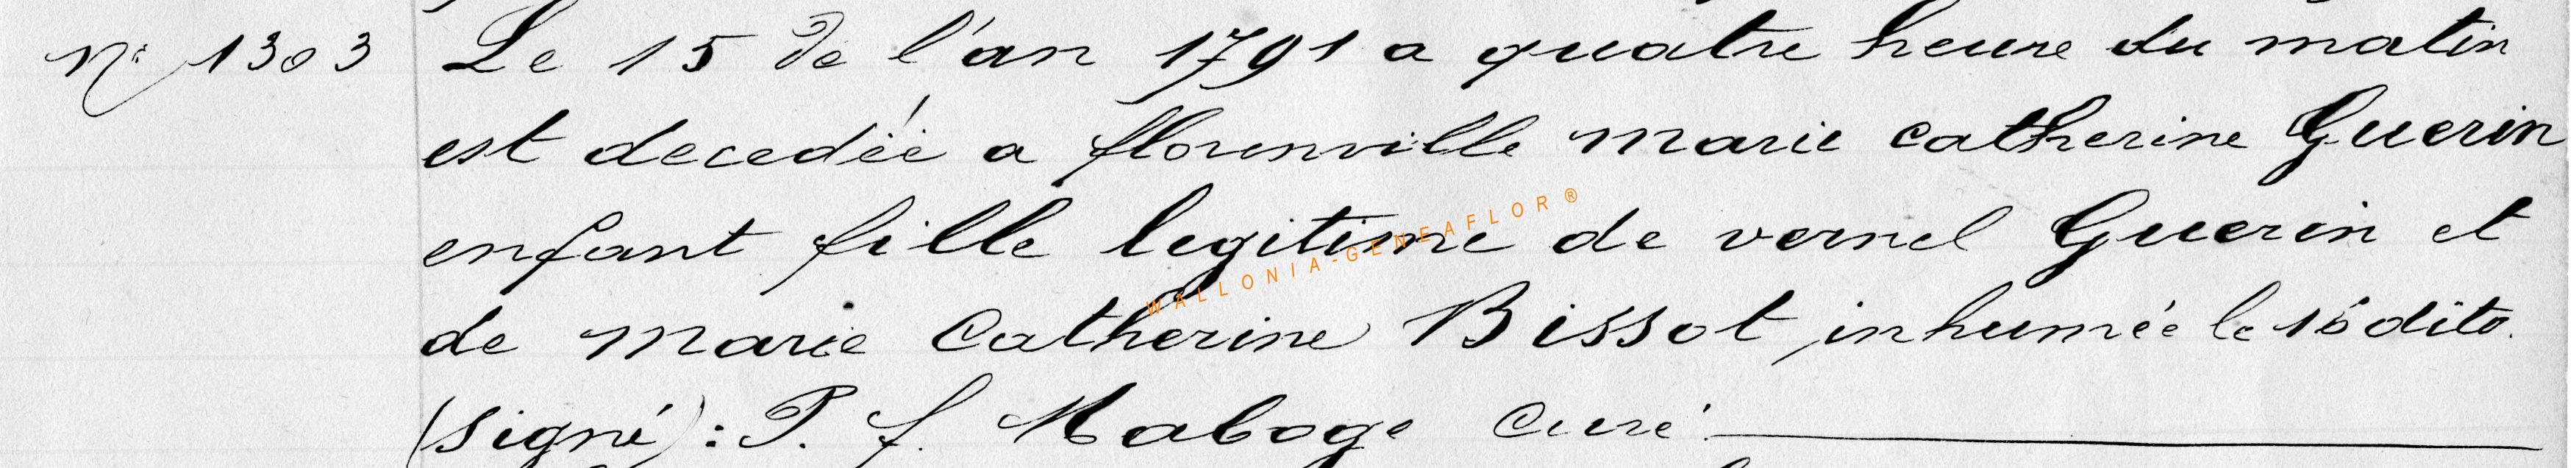 N° 1303 Le 15 de l'an 1791 a quatre heure du matin
est decedéé a florenville marie catherine Guerin
enfant fille legitime de vernel Guerin et
WALLONIA-GENEAFLOR®
de marie Catherine Bissot, inhumée le 16 dito.
(signé): P. f. Maboge Curé